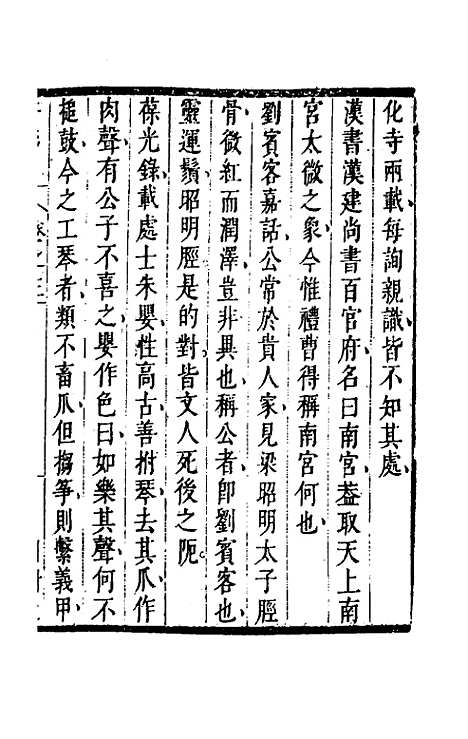 化寺兩載每詢親識皆不知其處
漢書漢建尚書百官府名曰南宮蓋取天上南
宮太微之象今惟禮曹得稱南宮何也
劉賓客嘉話公常於貴人家見梁昭明太子脛
骨微紅而潤澤豈非異也稱公者卽劉賓客也
靈運鬚昭明脛是的對皆文人死後之阨
葆光錄載處士朱嬰性高古善拊琴去其爪作
肉聲有公子不喜之嬰作色曰如樂其聲何不
搥鼓今之工琴者類不畜爪但搊箏則繫義甲